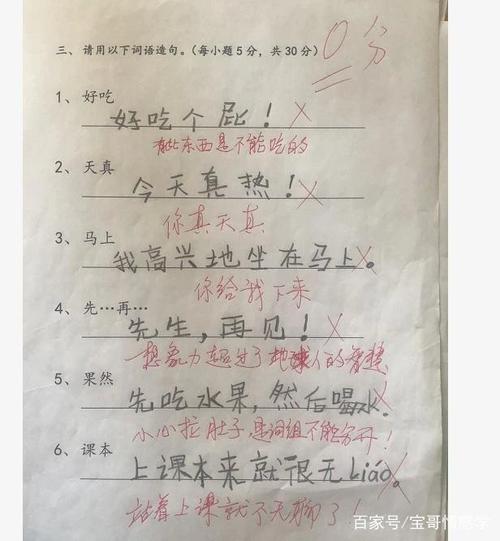 0分
三、请用以下词语造句。(每小题5分，共30分)
1、好吃
好吃个屁！
有些东西是不能吃的
2、天真
今天真热！
你真天真
3、马上
我高兴地坐在马上。
你给我下来
4、先…再…
先生，再见！
想象力超过了地球人的智慧
5、果然
先吃水果，然后喝水。
小心拉肚子，是词组不能分开！
6、课本
上课本来就很无Liáo。
站着上课就不无聊了！
百家号/宝哥情感学